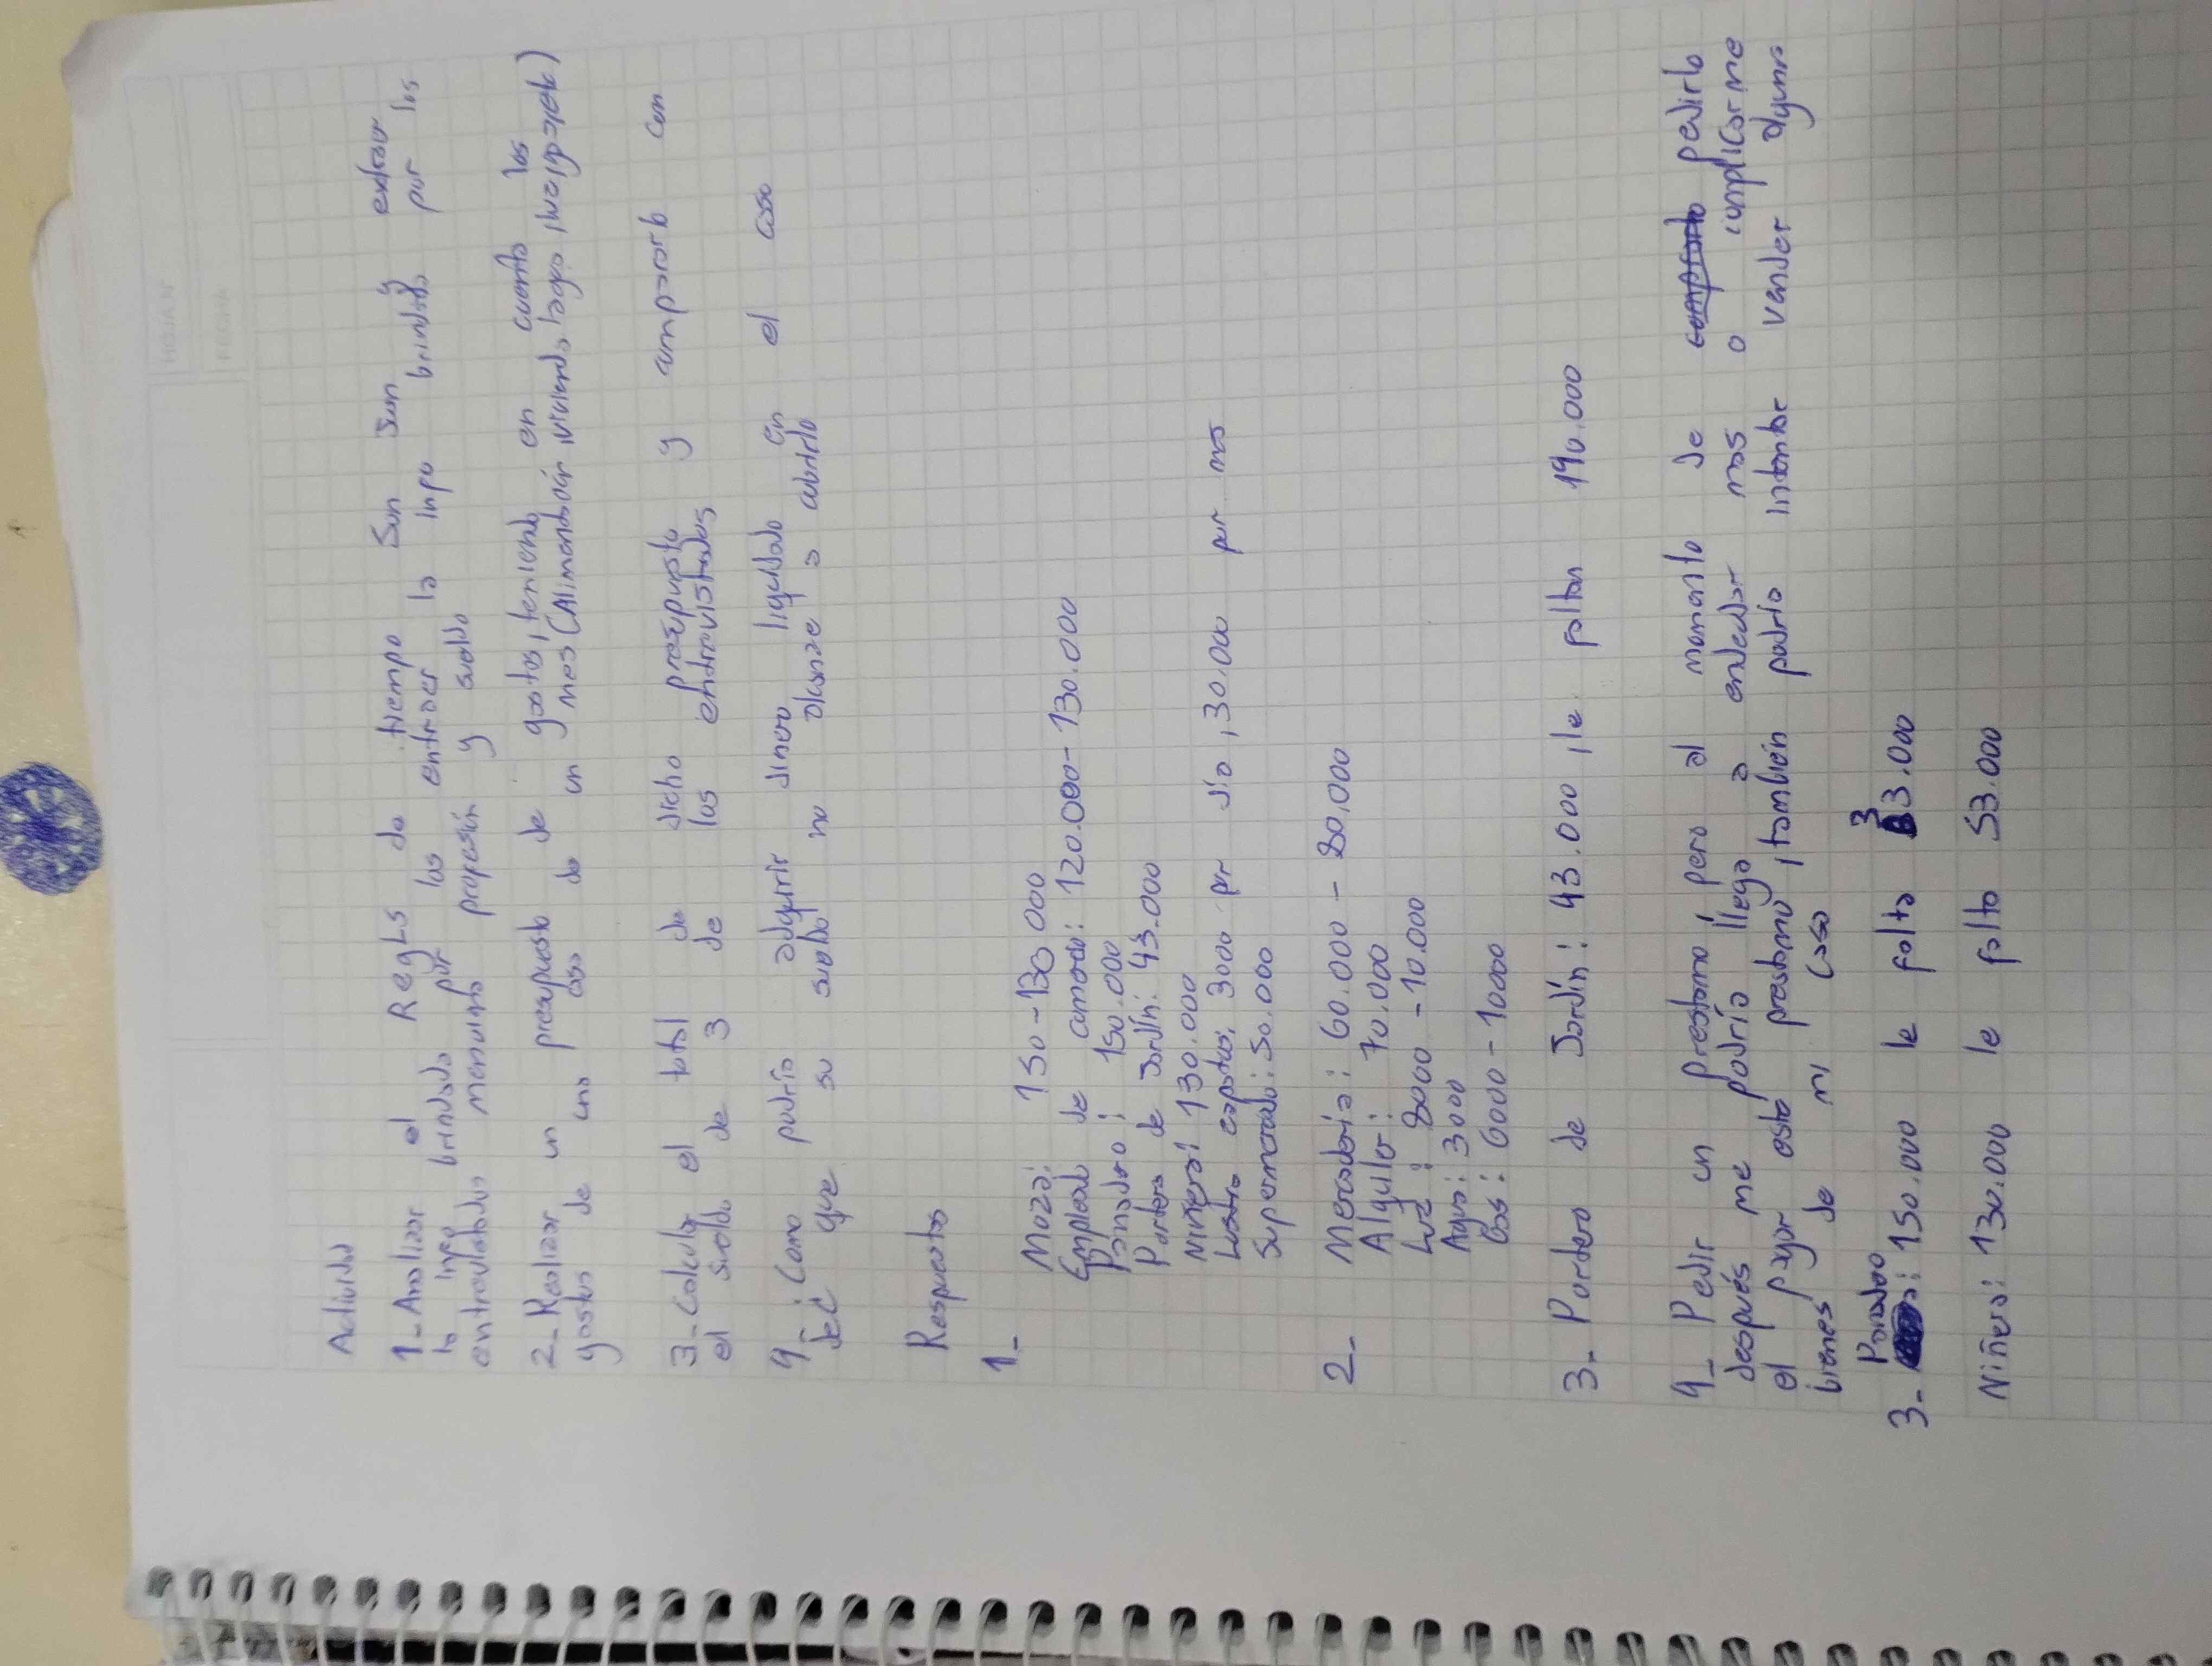 HOJA N°
FECHA
Actividad
1- Analizar el Reels de tiempo Sun Sun y extraer
la info brindada por las entraer la info brindada por los
entrevistados menciando profesión y sueldo
2- Realizar un presupuesto de gastos, teniendo en cuenta los
gastos de una casa de un mes (Alimentación, vivienda, luego,
3- Calcular el total de dicho presupuesto y compararlo con
el sueldo de 3 de los entrevistados
4- Como podría adquirir dinero liquidado en el caso
de que su sueldo no alcanze a cubrirlo
Respuestas
1-
Moza: 130-130 000
Empleado de comercio: 120.000-130.000
Panadero: 150.000
Portera de Jardín: 43.000
Niñera: 130.000
Lustra zapatos: 3000 por día, 30.000 por mes
Supermercado: 50.000
2- Mercadería: 60.000 - 80.000
Alquiler: 70.000
Luz: 8000 - 10.000
Agua: 3000
Gas: 6000 - 10000
3- Portero de Jardín: 43.000, le faltan 140.000
4- Pedir un prestamo, pero al momento de pedirlo
después me podría llegar a endeudar mas o complicarme
el pagar este prestamo, también podría intentar vender algunos
bienes de mi casa
Panadero
3- : 150.000 le falta 33.000
Niñera: 130.000 le falta 53.000